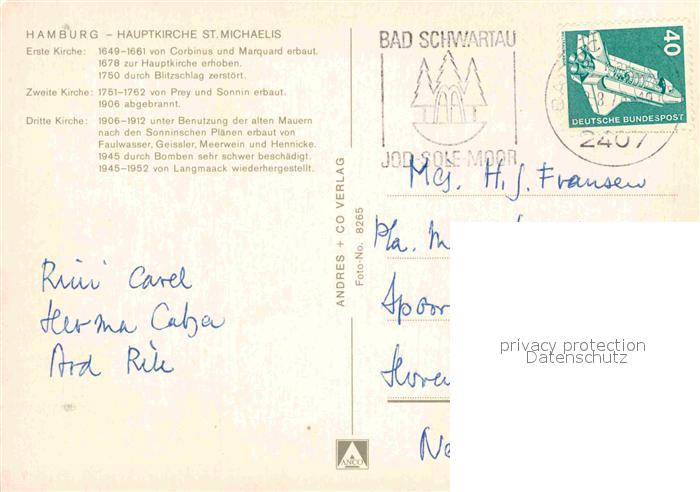 HAMBURG – HAUPTKIRCHE ST. MICHAELIS
Erste Kirche: 1649–1661 von Corbinus und Marquard erbaut.
1678 zur Hauptkirche erhoben.
1750 durch Blitzschlag zerstört.
Zweite Kirche: 1751–1762 von Prey und Sonnin erbaut.
1906 abgebrannt.
Dritte Kirche: 1906–1912 unter Benutzung der alten Mauern
nach den Sonninschen Plänen erbaut von
Faulwasser, Geissler, Meerwein und Hennicke.
1945 durch Bomben sehr schwer beschädigt.
1945–1952 von Langmaack wiederhergestellt.
ANDRES + CO VERLAG
Foto-No. 8265
BAD SCHWARTAU
JOD-SOLE-MOOR
40
DEUTSCHE BUNDESPOST
2407
H. J. Fransen
Pla. M
Spoor
Rini Carel
Herma
Ard Rik
ANCO
privacy protection
Datenschutz